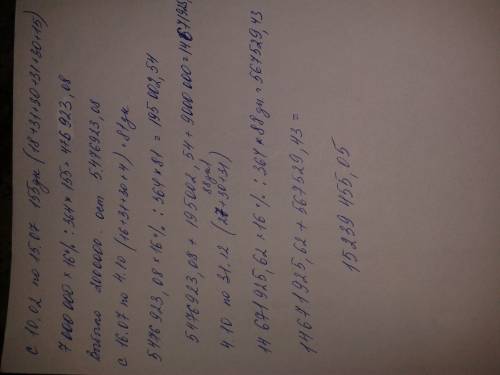 с 10.02 по 15.07 155дн (18+31+30+31+30+15)
7 000 000 × 16% : 364 × 155 = 476 923,08
2000000. ост 5.476923,08
с 16.07 по 4.10 (16+31+30+4) = 81дн
5.476 923,08 × 16% : 364 × 81 = 195 002,54
5476 923,08 + 195002,54 + 9000 000 = 14671925,
88дн
4.10 по 31.12 (27+30+31)
14 671925,62 × 16% : 364 × 88дн = 567529,43
14671925,62 + 567529,43 =
15239 455,05